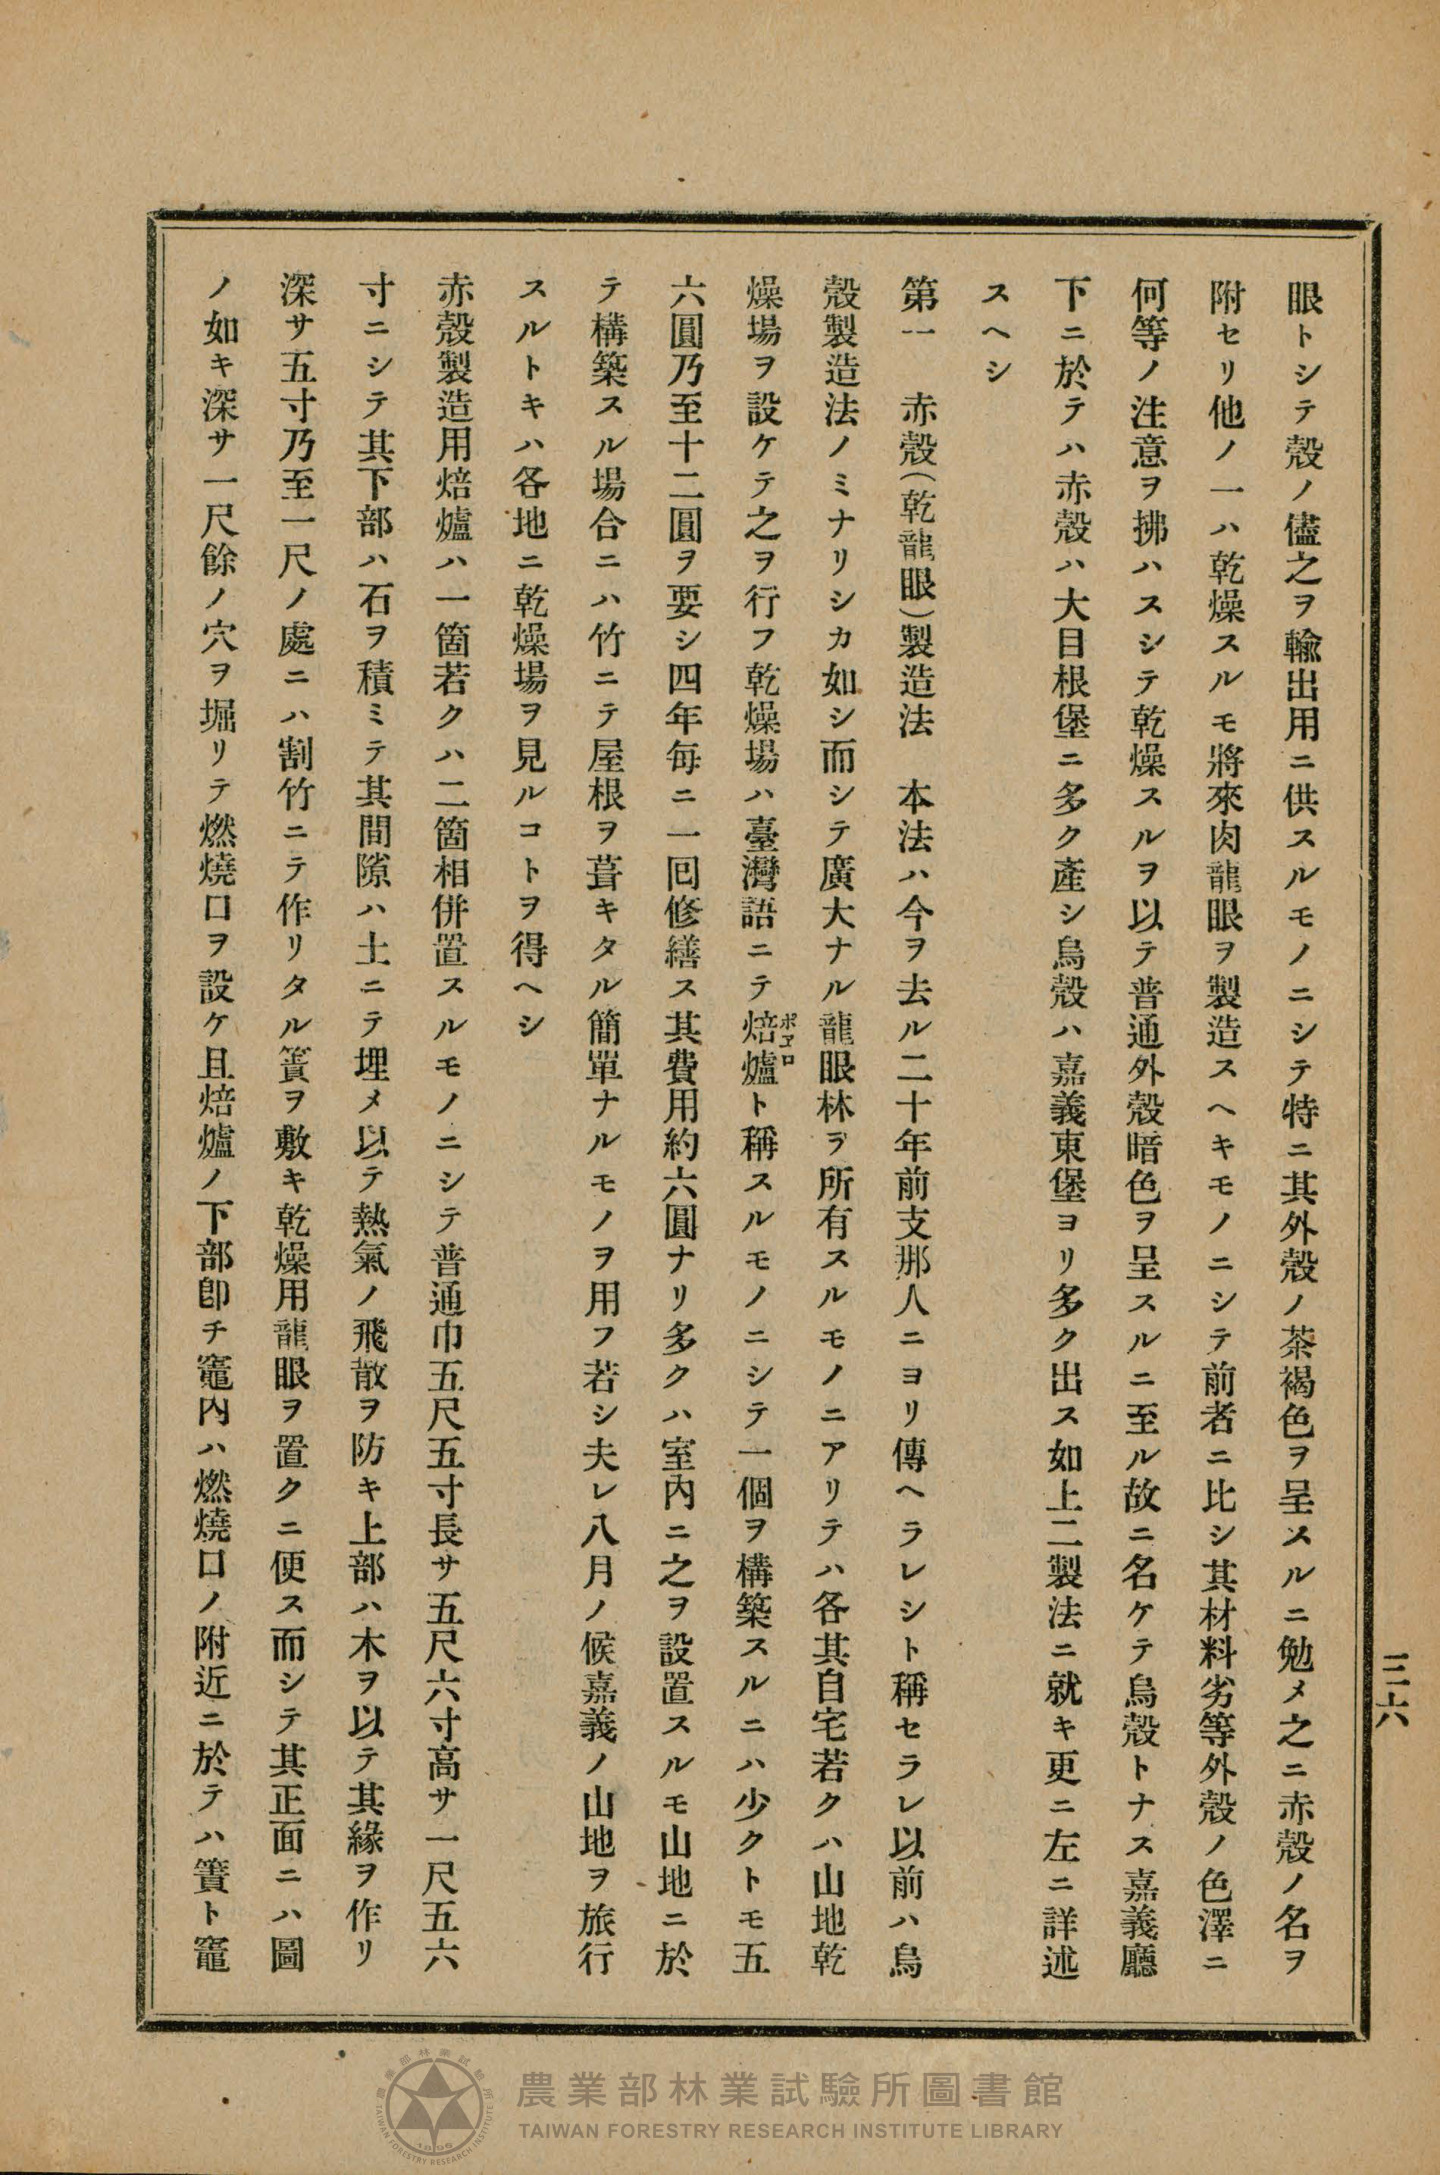 三六
眼トシテ殼ノ儘之ヲ輸出用ニ供スルモノニシテ特ニ其外殼ノ茶褐色ヲ呈スルニ勉メ之ニ赤殼ノ名ヲ
附セリ他ノ一ハ乾燥スルモ將來肉龍眼ヲ製造スヘキモノニシテ前者ニ比シ其材料劣等外殼ノ色澤ニ
何等ノ注意ヲ拂ハスシテ乾燥スルヲ以テ普通外殼暗色ヲ呈スルニ至ル故ニ名ケテ烏殼トナス嘉義廳
下ニ於テハ赤殼ハ大目根堡ニ多ク產シ烏殼ハ嘉義東堡ヨリ多ク出ス如上二製法ニ就キ更ニ左ニ詳述
スヘシ
第一　赤殼(乾龍眼)製造法　本法ハ今ヲ去ル二十年前支那人ニヨリ傳ヘラレシト稱セラレ以前ハ烏
殼製造法ノミナリシカ如シ而シテ廣大ナル龍眼林ヲ所有スルモノニアリテハ各其自宅若クハ山地乾
燥場ヲ設ケテ之ヲ行フ乾燥場ハ臺灣語ニテ焙爐ト稱スルモノニシテ一個ヲ構築スルニハ少クトモ五
ポヱロ
六圓乃至十二圓ヲ要シ四年每ニ一回修繕ス其費用約六圓ナリ多クハ室內ニ之ヲ設置スルモ山地ニ於
テ構築スル場合ニハ竹ニテ屋根ヲ葺キタル簡單ナルモノヲ用フ若シ夫レ八月ノ候嘉義ノ山地ヲ旅行
スルトキハ各地ニ乾燥場ヲ見ルコトヲ得ヘシ
赤殼製造用焙爐ハ一箇若クハ二箇相併置スルモノニシテ普通巾五尺五寸長サ五尺六寸高サ一尺五六
寸ニシテ其下部ハ石ヲ積ミテ其間隙ハ土ニテ埋メ以テ熱氣ノ飛散ヲ防キ上部ハ木ヲ以テ其緣ヲ作リ
深サ五寸乃至一尺ノ處ニハ割竹ニテ作リタル簀ヲ敷キ乾燥用龍眼ヲ置クニ便ス而シテ其正面ニハ圖
ノ如キ深サ一尺餘ノ穴ヲ堀リテ燃燒口ヲ設ケ且焙爐ノ下部卽チ竈內ハ燃燒口ノ附近ニ於テハ簀ト竈
農業部林業試驗所圖書館
TAIWAN FORESTRY RESEARCH INSTITUTE LIBRARY
農業部林業試驗所
TAIWAN FORESTRY RESEARCH INSTITUTE
1896